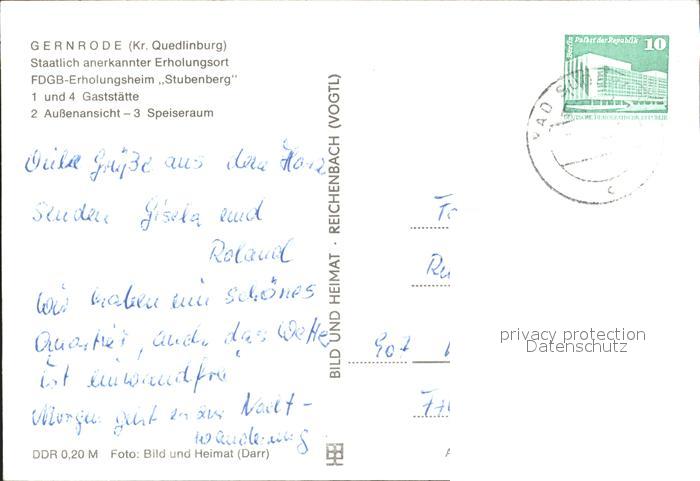 GERNRODE (Kr. Quedlinburg)
Staatlich anerkannter Erholungsort
FDGB-Erholungsheim „Stubenberg"
1 und 4 Gaststätte
2 Außenansicht – 3 Speiseraum
Viele Grüße aus dem Harz
senden Gisela und
Roland
Wir haben ein schönes
Quartier, auch das Wetter
ist einwandfrei
Morgen geht es zur Nacht-
wanderung
DDR 0,20 M Foto: Bild und Heimat (Darr)
BILD UND HEIMAT · REICHENBACH (VOGTL)
Berlin Palast der Republik 10
DEUTSCHE DEMOKRATISCHE REPUBLIK
BAD
privacy protection
Datenschutz